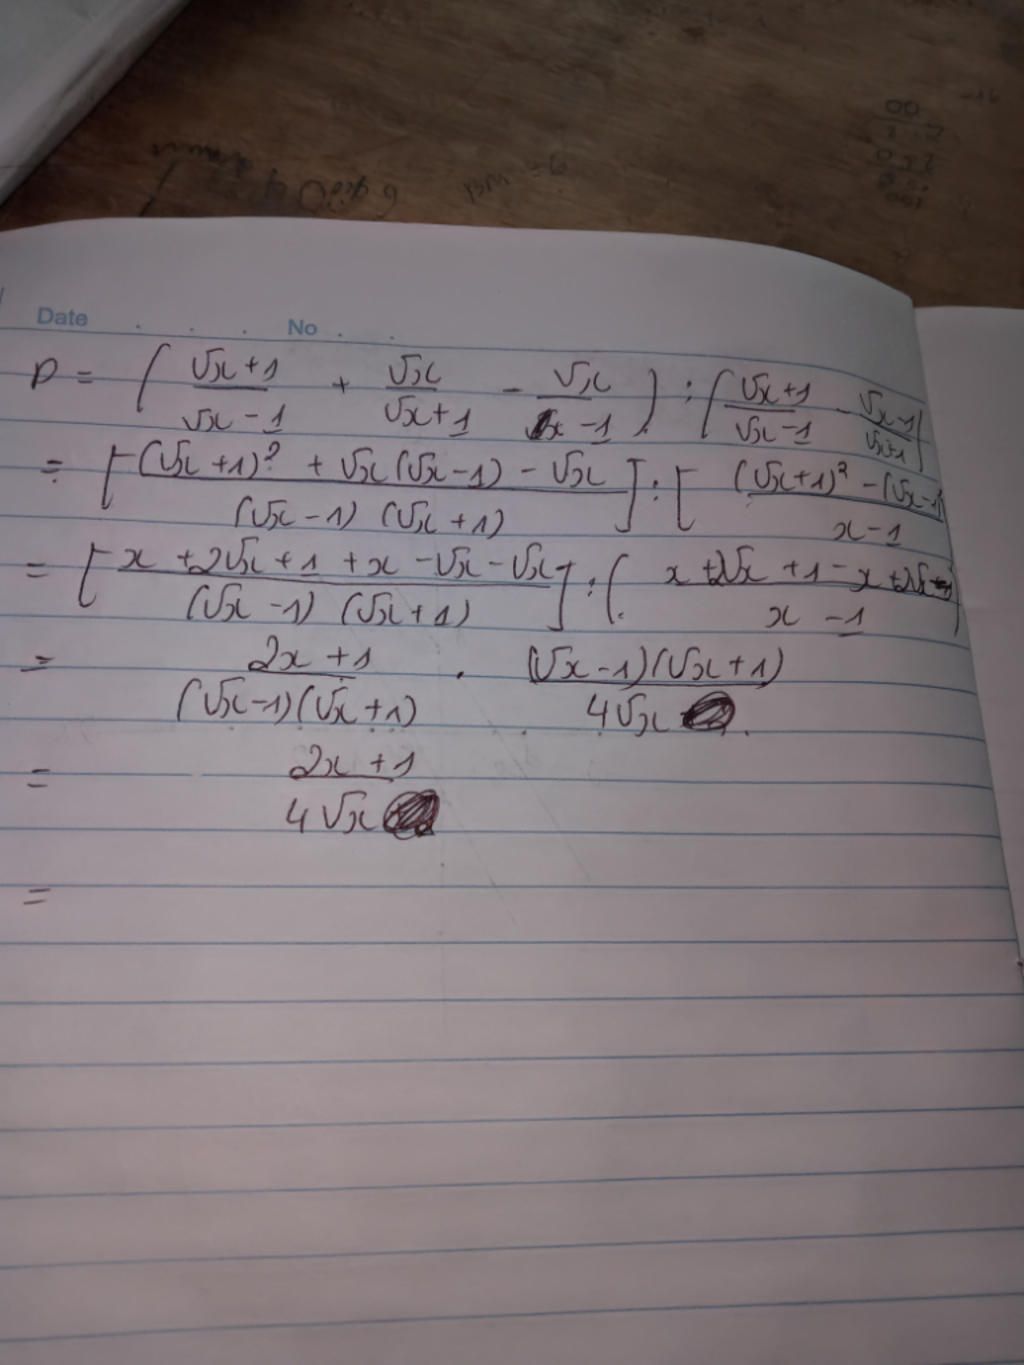 Date No
P = ( √x + 1 / √x - 1 + √x / √x + 1 - √x / x - 1 ) : ( √x + 1 / √x - 1 - √x - 1 / √x + 1 )
= [ (√x + 1)² + √x (√x - 1) - √x / (√x - 1) (√x + 1) ] : [ (√x + 1)² - (√x - 1) / x - 1
= [ x + 2√x + 1 + x - √x - √x / (√x - 1) (√x + 1) ] : ( x + 2√x + 1 - x + 2√x - 1 / x - 1 )
= 2x + 1 / (√x - 1)(√x + 1) . (√x - 1)(√x + 1) / 4√x .
= 2x + 1 / 4√x
=